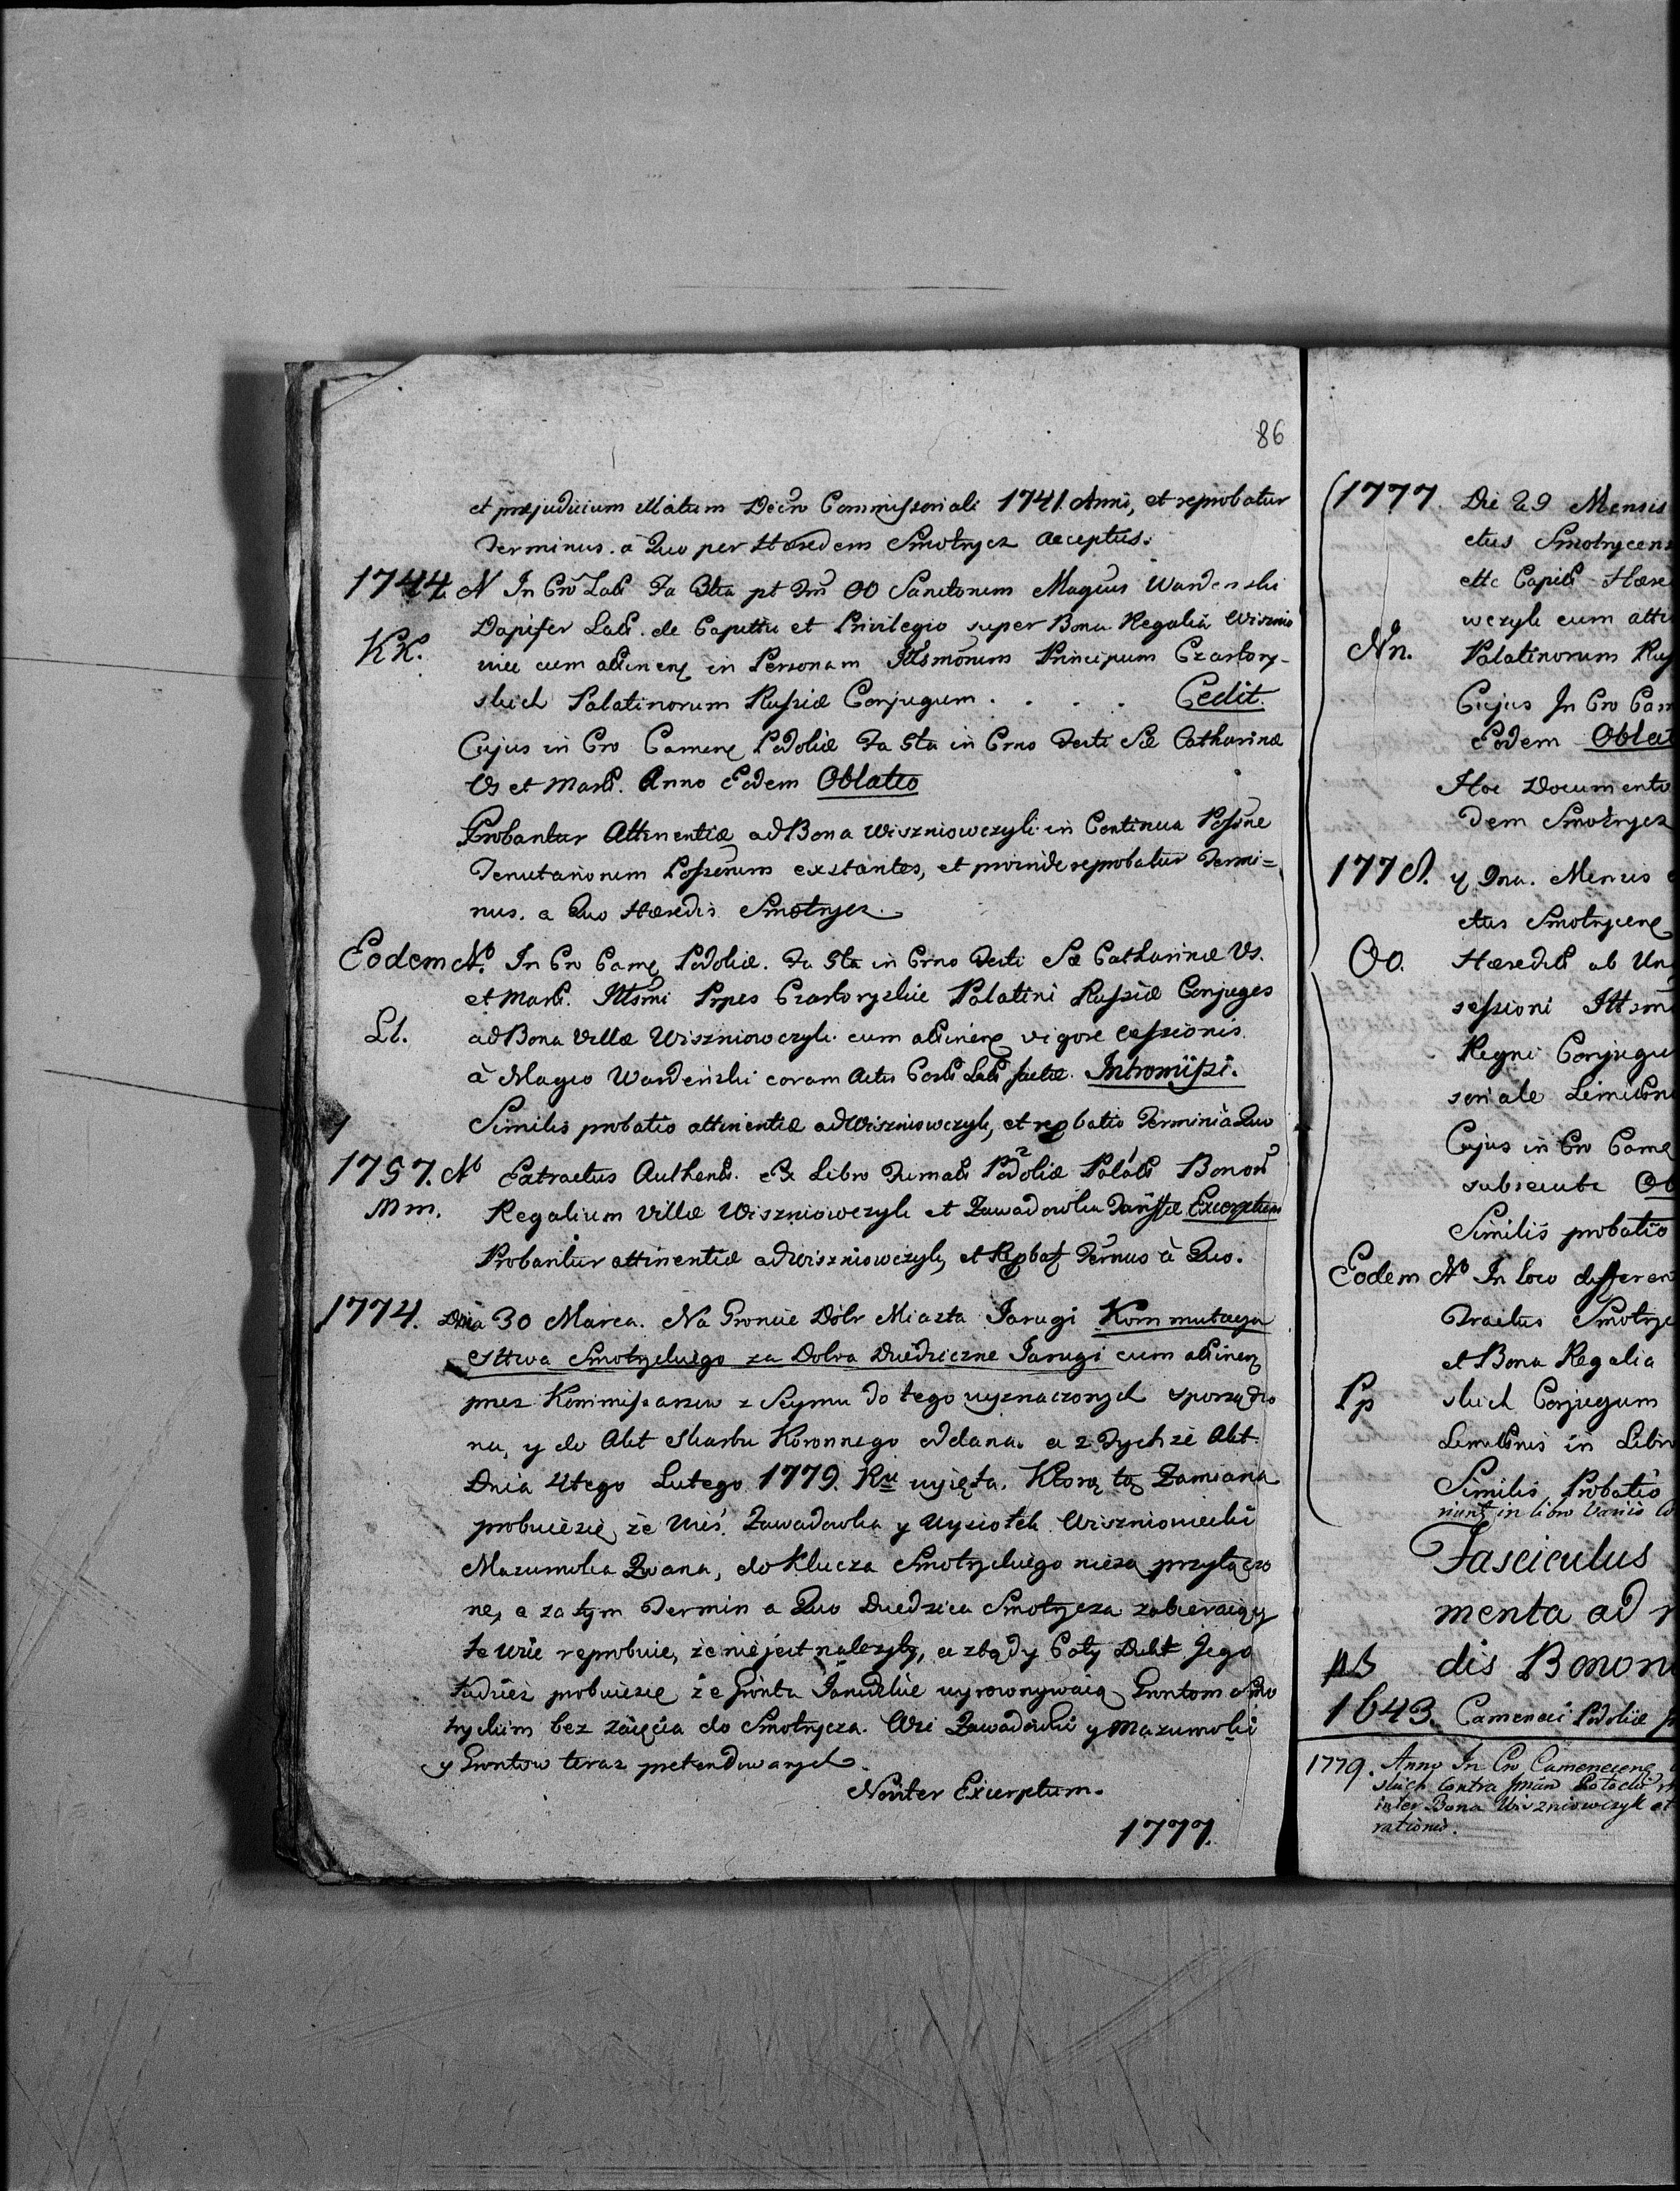 86
et præjudicium illatum Decro Commissoriali 1741. Anni, et reprobatur
Terminus. a Quo per Hæredem Smotrycz acceptus.
1744. N In Cro Lati Fa 3tia pt Fm OO Sanctorum Magcus Wardenski
Dapifer Lati. de Capettu et Privilegio super Bona Regalia Wisznio
KK.
wiec cum attinen in Personam Illsmorum Principum Czartory-
skich Palatinorum Russiæ Conjugum . . . . Cedit.
Cujus in Cro Camene Podoliæ Fa 5ta in Crno Festi Sæ Catharinæ
Vs et Marts. Anno Eodem Oblatio
Probantur Attinentiæ ad Bona Wiszniowczyk in Continua Possne
Tenutariorum Possorum exstantes, et proinde reprobatur Termi=
nus. a Quo Hæredis Smotrycz.
Eodem No. In Cro Came Podoliæ. Fa 5ta in Crno Festi Sæ Catharinæ Vs.
et Marts. Illsmi Prpes Czartoryskie Palatini Russiæ Conjuges
Ll.
ad Bona Villæ Wiszniowczyk cum attinen vigore Cessionis
à Magco Wardeński coram Actis Cast Lati factæ. Intromissi.
Similis probatio attinentiæ ad Wiszniowczyk, et repbatio Termini à Quo
1757. No Extractus Authent. Ex Libro Fumali Podoliæ Palati Bonor
Mm.
Regalium Villæ Wiszniowczyk et Zawadowka Excerptum
Probantur attinentiæ ad Wiszniowczyk, et Repbat Ternus à Quo.
1774. Dnia 30 Marca. Na Groncie Dobr Miasta Jarugi Kommutacya
Sttwa Smotryckiego za Dobra Dziedziczne Jarugi cum attinen
przez Kommissarzow z Seymu do tego wyznaczonych sporządzo
na, y do Akt Skarbu Koronnego oddana. a z Tychże Akt
Dnia 4tego Lutego 1779. Ru wyięta. Ktorą tą Zamianą
probuiesię, że Wieś Zawadowka y Wysiołek Wiszniowiecki
Mazurowka Zwana, do Klucza Smotryckiego niesą przyłączo
ne, a za tym Termin a Quo Dziedzica Smotrycza zabieraiący
te Wsie reprobuie, że nie jest należyty, a ztąd y Cały Dukt Jego
tudzież probuiesię że Gronta Jarudzkie wyrownywaią Grontom Smo
tryckim bez zaięcia do Smotrycza. Wsi Zawadowki y Mazurowki
y Grontow teraz pretendowanych.
Noviter Excerptum.
1777.
1777. Die 29 Mensis
ctus Smotrycens
Hære
wczyk cum atti
Nn.
Palatinorum Rus
Cujus In Cro Cam
Eodem Oblat
Hoc Documento
dem Smotrycz
Mensis
ctus Smotrycene
Oo.
Hæredit ab Un
sessioni Illsm
Regni Conjugu
soriale
Cujus in Cro Came
subsecuta Ob
Similis probatio
Eodem No In loco differen
Tractus Smotryc
et Bona Regalia
Pp
skich Conjugum
in Libr
Similis Probatio
in libro
Fasciculus
menta ad
dis Bonor
1643. Cameneci Podoliæ
1779. Anno In Cro Camenecene
skich Contra Potocki
inter Bona Wiszniowczyk et
rationis.